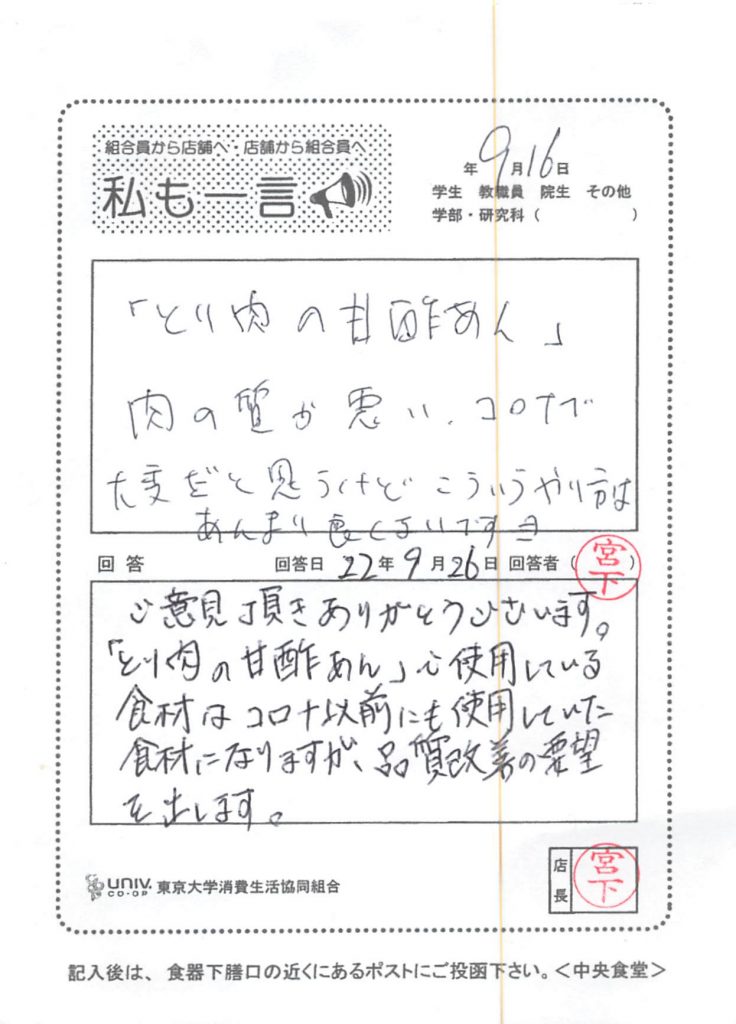 組合員から店舗へ・店舗から組合員へ
私も一言
年9月16日
学生 教職員 院生 その他
学部・研究科（ ）
「とり肉の甘酢あん」
肉の質が悪い、コロナで
大変だと思うけどこういうやり方は
あんまり良くないです
回答 回答日 22年9月26日 回答者（宮下）
ご意見頂きありがとうございます。
「とり肉の甘酢あん」で使用している
食材はコロナ以前にも使用していた
食材になりますが、品質改善の要望
を出します。
店長 宮下
UNIV. CO-OP 東京大学消費生活協同組合
記入後は、食器下膳口の近くにあるポストにご投函下さい。＜中央食堂＞